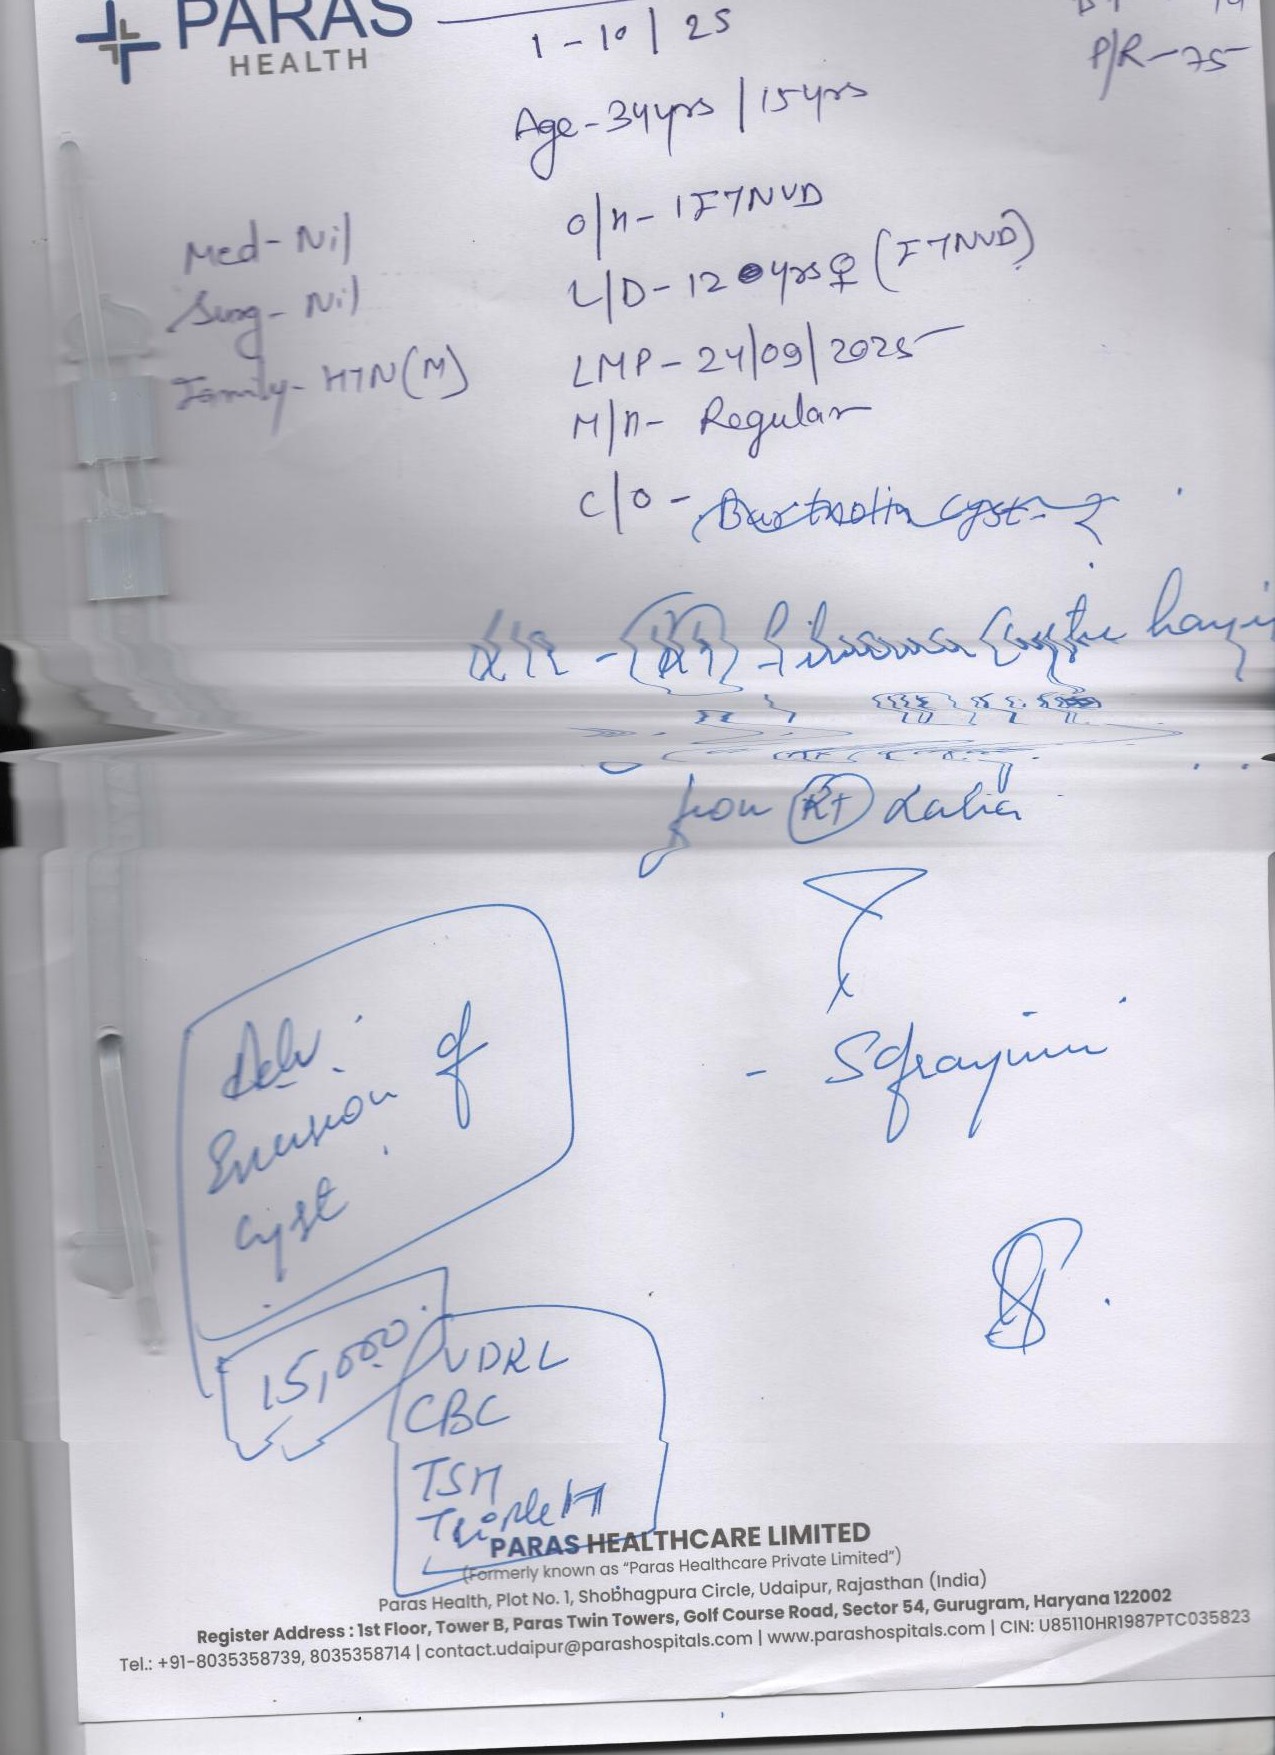 PARAS
HEALTH
1-10/25
P/R-75
Age-34yrs/15yrs
O/H-1FTNVD
Med-Nil
L/D-12 yrs♀(FTNVD)
Surg-Nil
LMP-24/09/2025
Family-HTN(M)
M/H-Regular
C/O-Bartholin cyst-
from Rt Labia
Adv.
Excision of
cyst.
15,000
VDRL
CBC
TSH
Triple H
PARAS HEALTHCARE LIMITED
(Formerly known as “Paras Healthcare Private Limited”)
Paras Health, Plot No. 1, Shobhagpura Circle, Udaipur, Rajasthan (India)
Register Address : 1st Floor, Tower B, Paras Twin Towers, Golf Course Road, Sector 54, Gurugram, Haryana 122002
Tel.: +91-8035358739, 8035358714 | contact.udaipur@parashospitals.com | www.parashospitals.com | CIN: U85110HR1987PTC035823